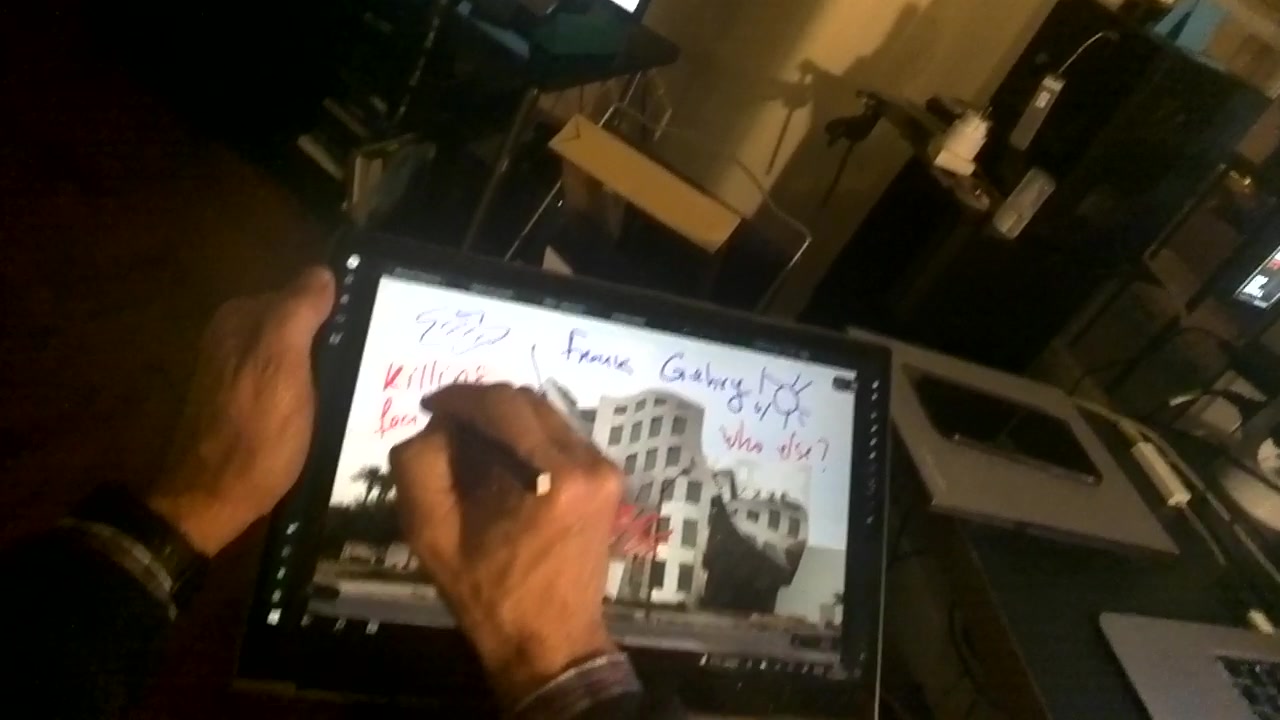 Frank Gehry!
Killing
who else?